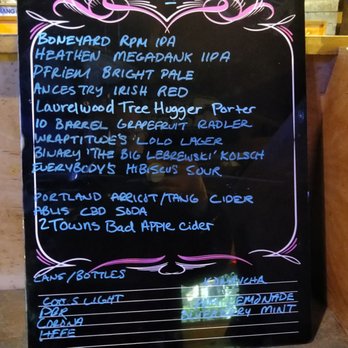 BONEYARD RPM IPA
HEATHEN MEGADANK IIPA
PFRIEM BRIGHT PALE
ANCESTRY IRISH RED
Laurelwood Tree Hugger Porter
10 BARREL GRAPEFRUIT RADLER
WRAPTITUDE'S LOLO LAGER
BINARY 'THE BIG LEBREWSKI' KOLSCH
EVERYBODY'S HIBISCUS SOUR
PORTLAND APRICOT/TANG CIDER
CBD SODA
2 Towns Bad Apple cider
CANS/BOTTLES
COORS LIGHT
LEMONADE
PBR
MINT
CORONA